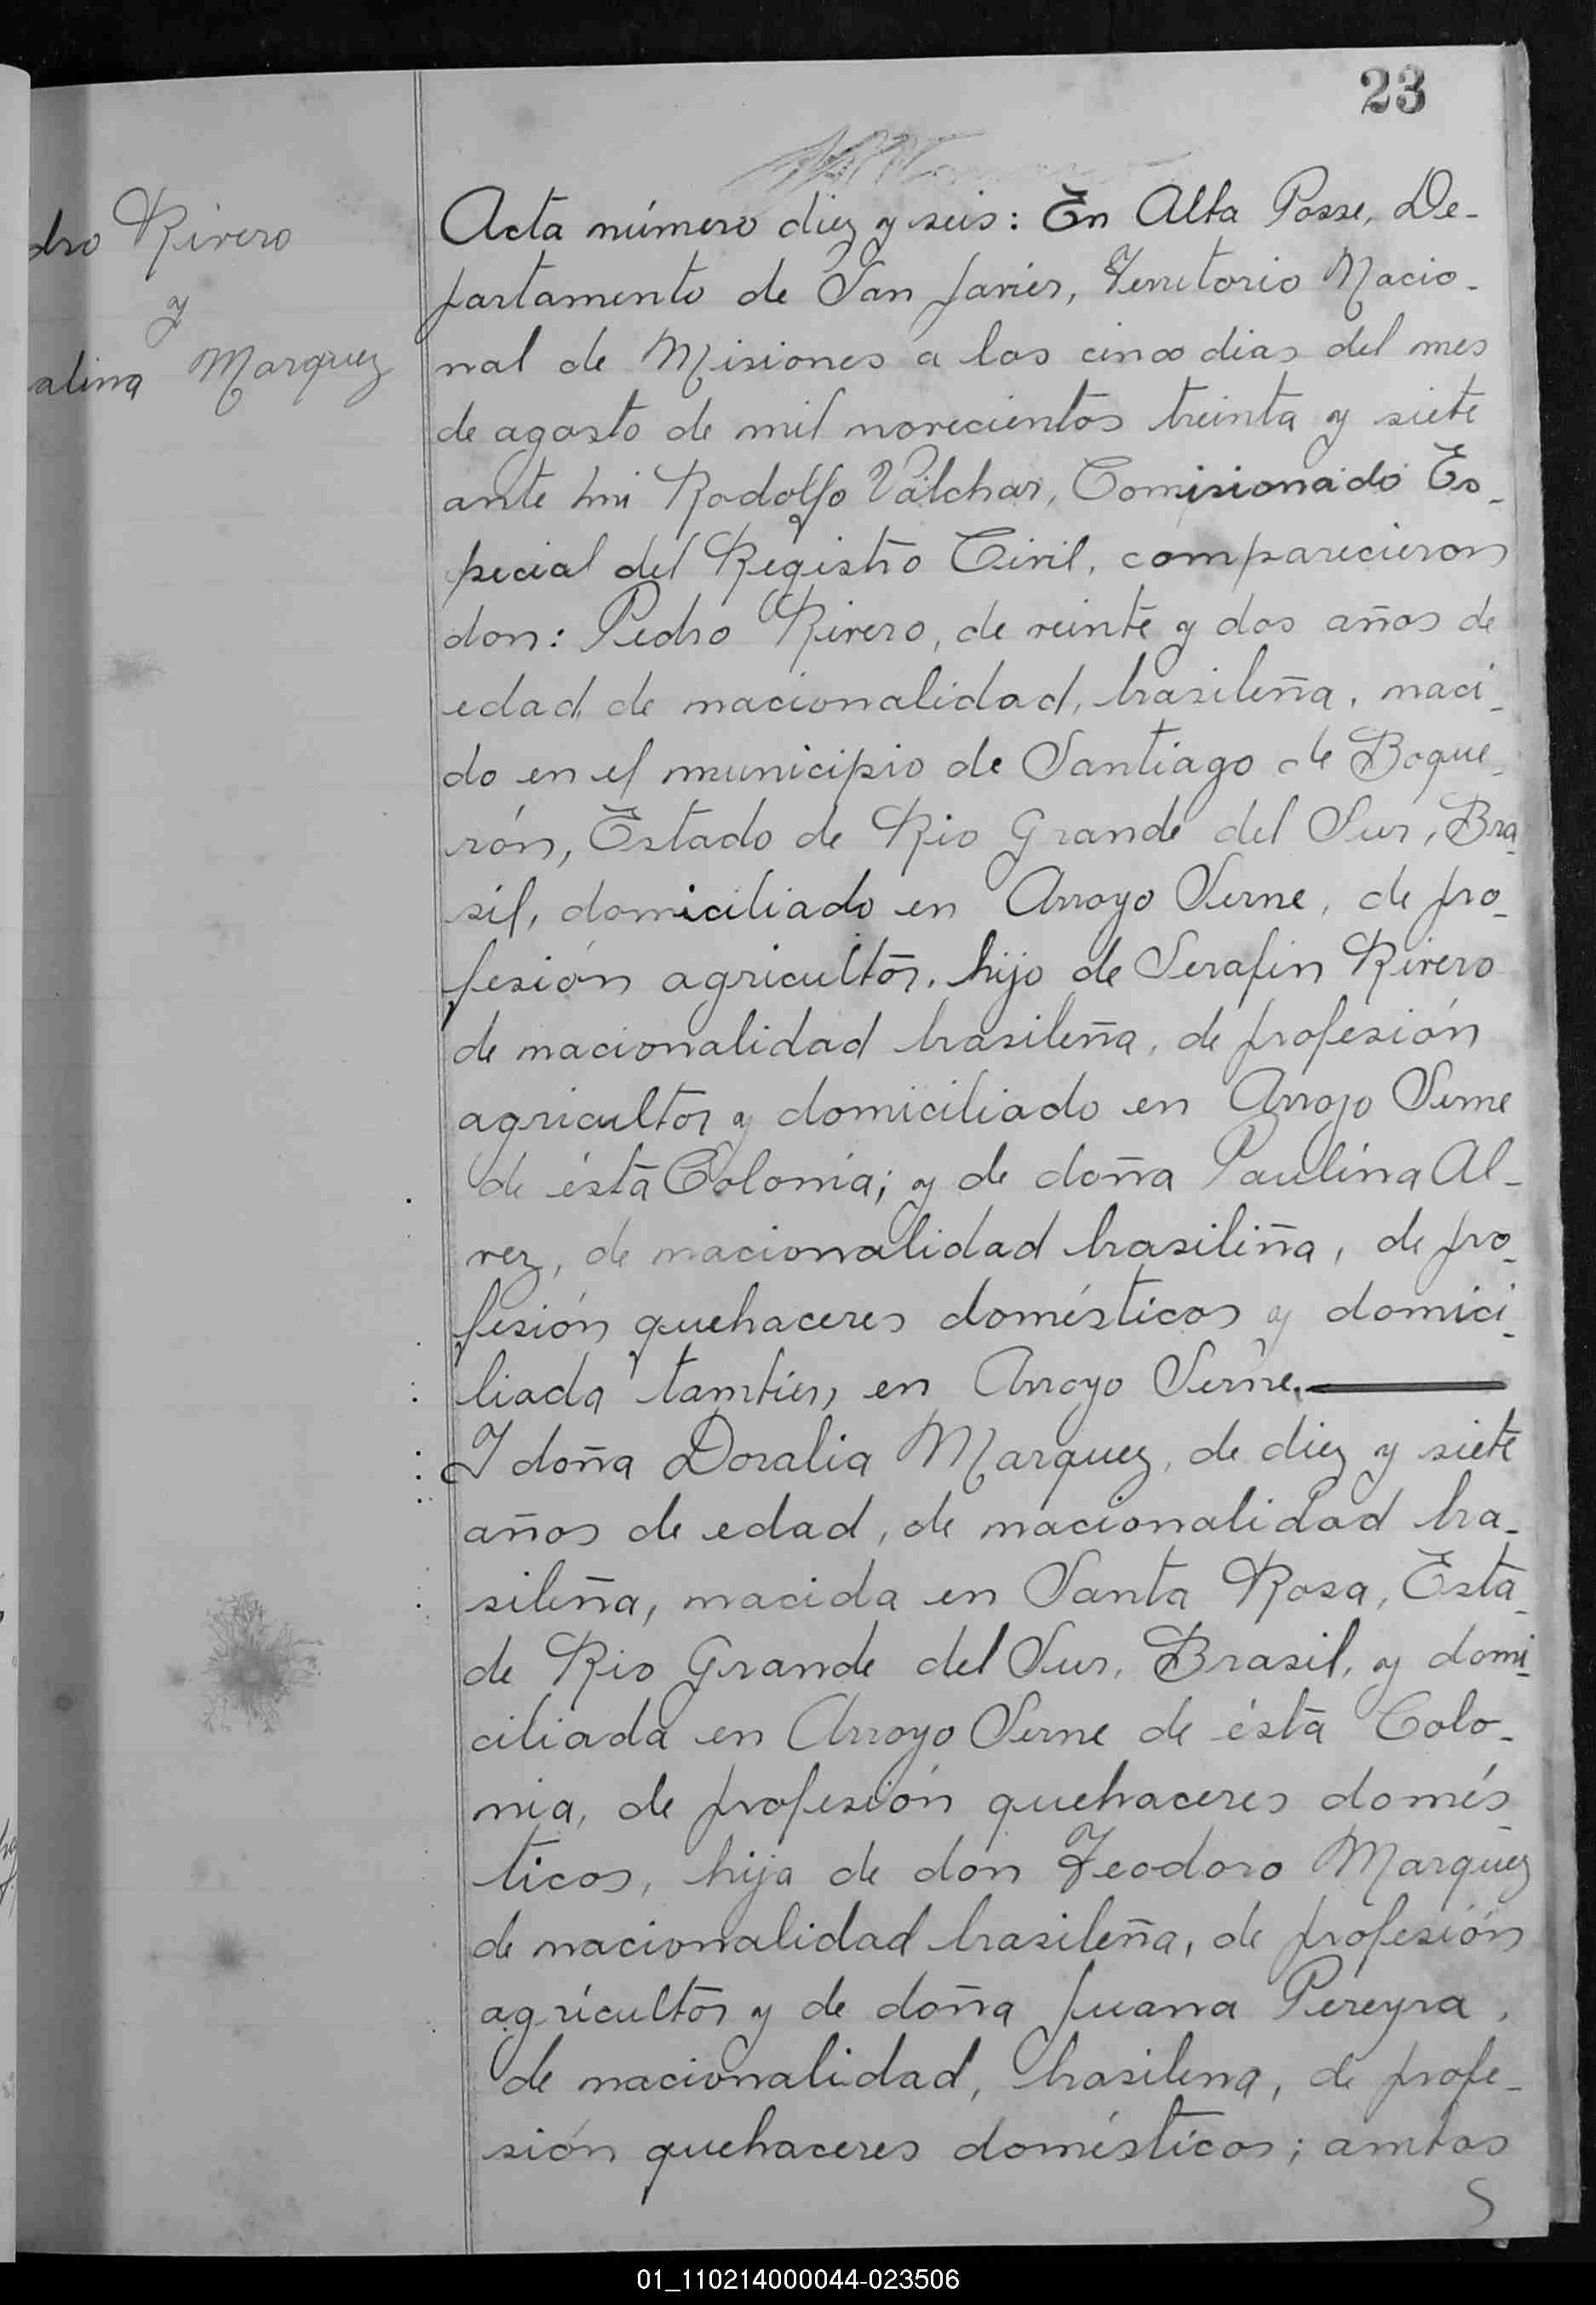 23
dro Rivero
y
alina Marquez
Acta número diez y seis: En Alba Posse, De-
partamento de San Javier, Territorio Nacio-
nal de Misiones a los cinco dias del mes
de agosto de mil novecientos treinta y siete
ante mi Rodolfo Valchar, Comisionado Es-
pecial del Registro Civil, comparecieron
don: Pedro Rivero, de veinte y dos años de
edad, de nacionalidad, brasileña, naci-
do en el municipio de Santiago de Boque-
rón, Estado de Rio Grande del Sur, Bra-
sil, domiciliado en Arroyo Serne, de pro-
fesión agricultor, hijo de Serafin Rivero
de nacionalidad brasileña, de profesión
agricultor y domiciliado en Arroyo Serne
de ésta Colonia; y de doña Paulina Al-
vez, de nacionalidad brasileña, de pro-
fesión quehaceres domésticos y domici-
liada tambien en Arroyo Serne.
Y doña Doralia Marquez, de diez y siete
años de edad, de nacionalidad bra-
sileña, nacida en Santa Rosa, Esta-
de Rio Grande del Sur, Brasil, y domi-
ciliada en Arroyo Serne de ésta Colo-
nia, de profesión quehaceres domés-
ticos, hija de don Teodoro Marquez
de nacionalidad brasileña, de profesión
agricultor y de doña Juana Pereyra,
de nacionalidad, brasilena, de profe-
sión quehaceres domésticos; ambos
01_110214000044-023506